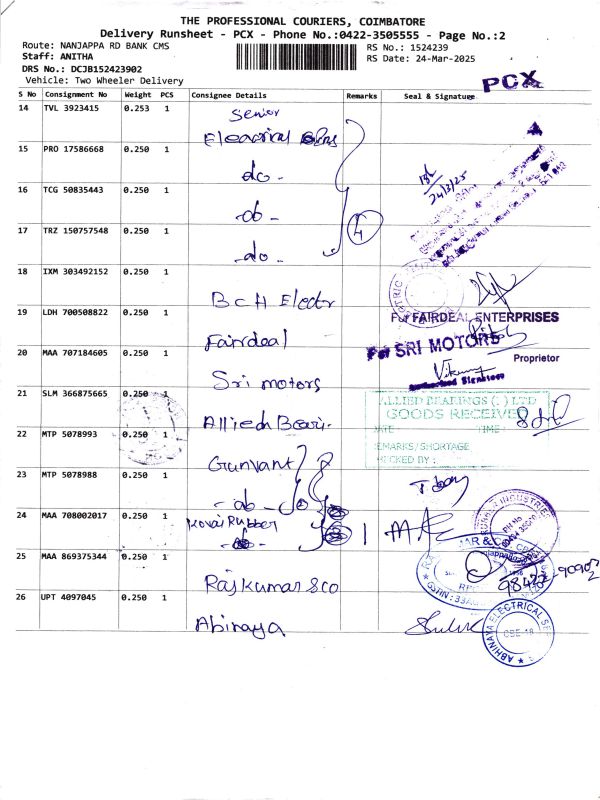 THE PROFESSIONAL COURIERS, COIMBATORE
Delivery Runsheet - PCX - Phone No.:0422-3505555 - Page No.:2
Route: NANJAPPA RD BANK CMS
Staff: ANITHA
DRS No.: DCJB152423902
Vehicle: Two Wheeler Delivery
RS No.: 1524239
RS Date: 24-Mar-2025
PCX
S No Consignment No Weight PCS Consignee Details Remarks Seal & Signature
14 TVL 3923415 0.253 1 Senior
15 PRO 17586668 0.250 1 do -
24/3/25
16 TCG 50835443 0.250 1 -do-
17 TRZ 150757548 0.250 1 -do-
4
18 IXM 303492152 0.250 1 BCH Electr
19 LDH 700508822 0.250 1 Fairdeal
For FAIRDEAL ENTERPRISES
Proprietor
20 MAA 707184605 0.250 1 Sri motors
For SRI MOTORS
Authorised Signatory
21 SLM 366875665 0.250 1 Allied Beari.
ALLIED BEARINGS (I) LTD
GOODS RECEIVED
DATE TIME:
REMARKS/SHORTAGE
CHECKED BY:
22 MTP 5078993 0.250 1 Gunvant
23 MTP 5078988 0.250 1 -do-
24 MAA 708002017 0.250 1 Kovai Rubber
1
25 MAA 869375344 0.250 1 Rajkumar & co
98422-90902
26 UPT 4097045 0.250 1 Abinaya
ABHINAYA ELECTRICAL
CBE-18